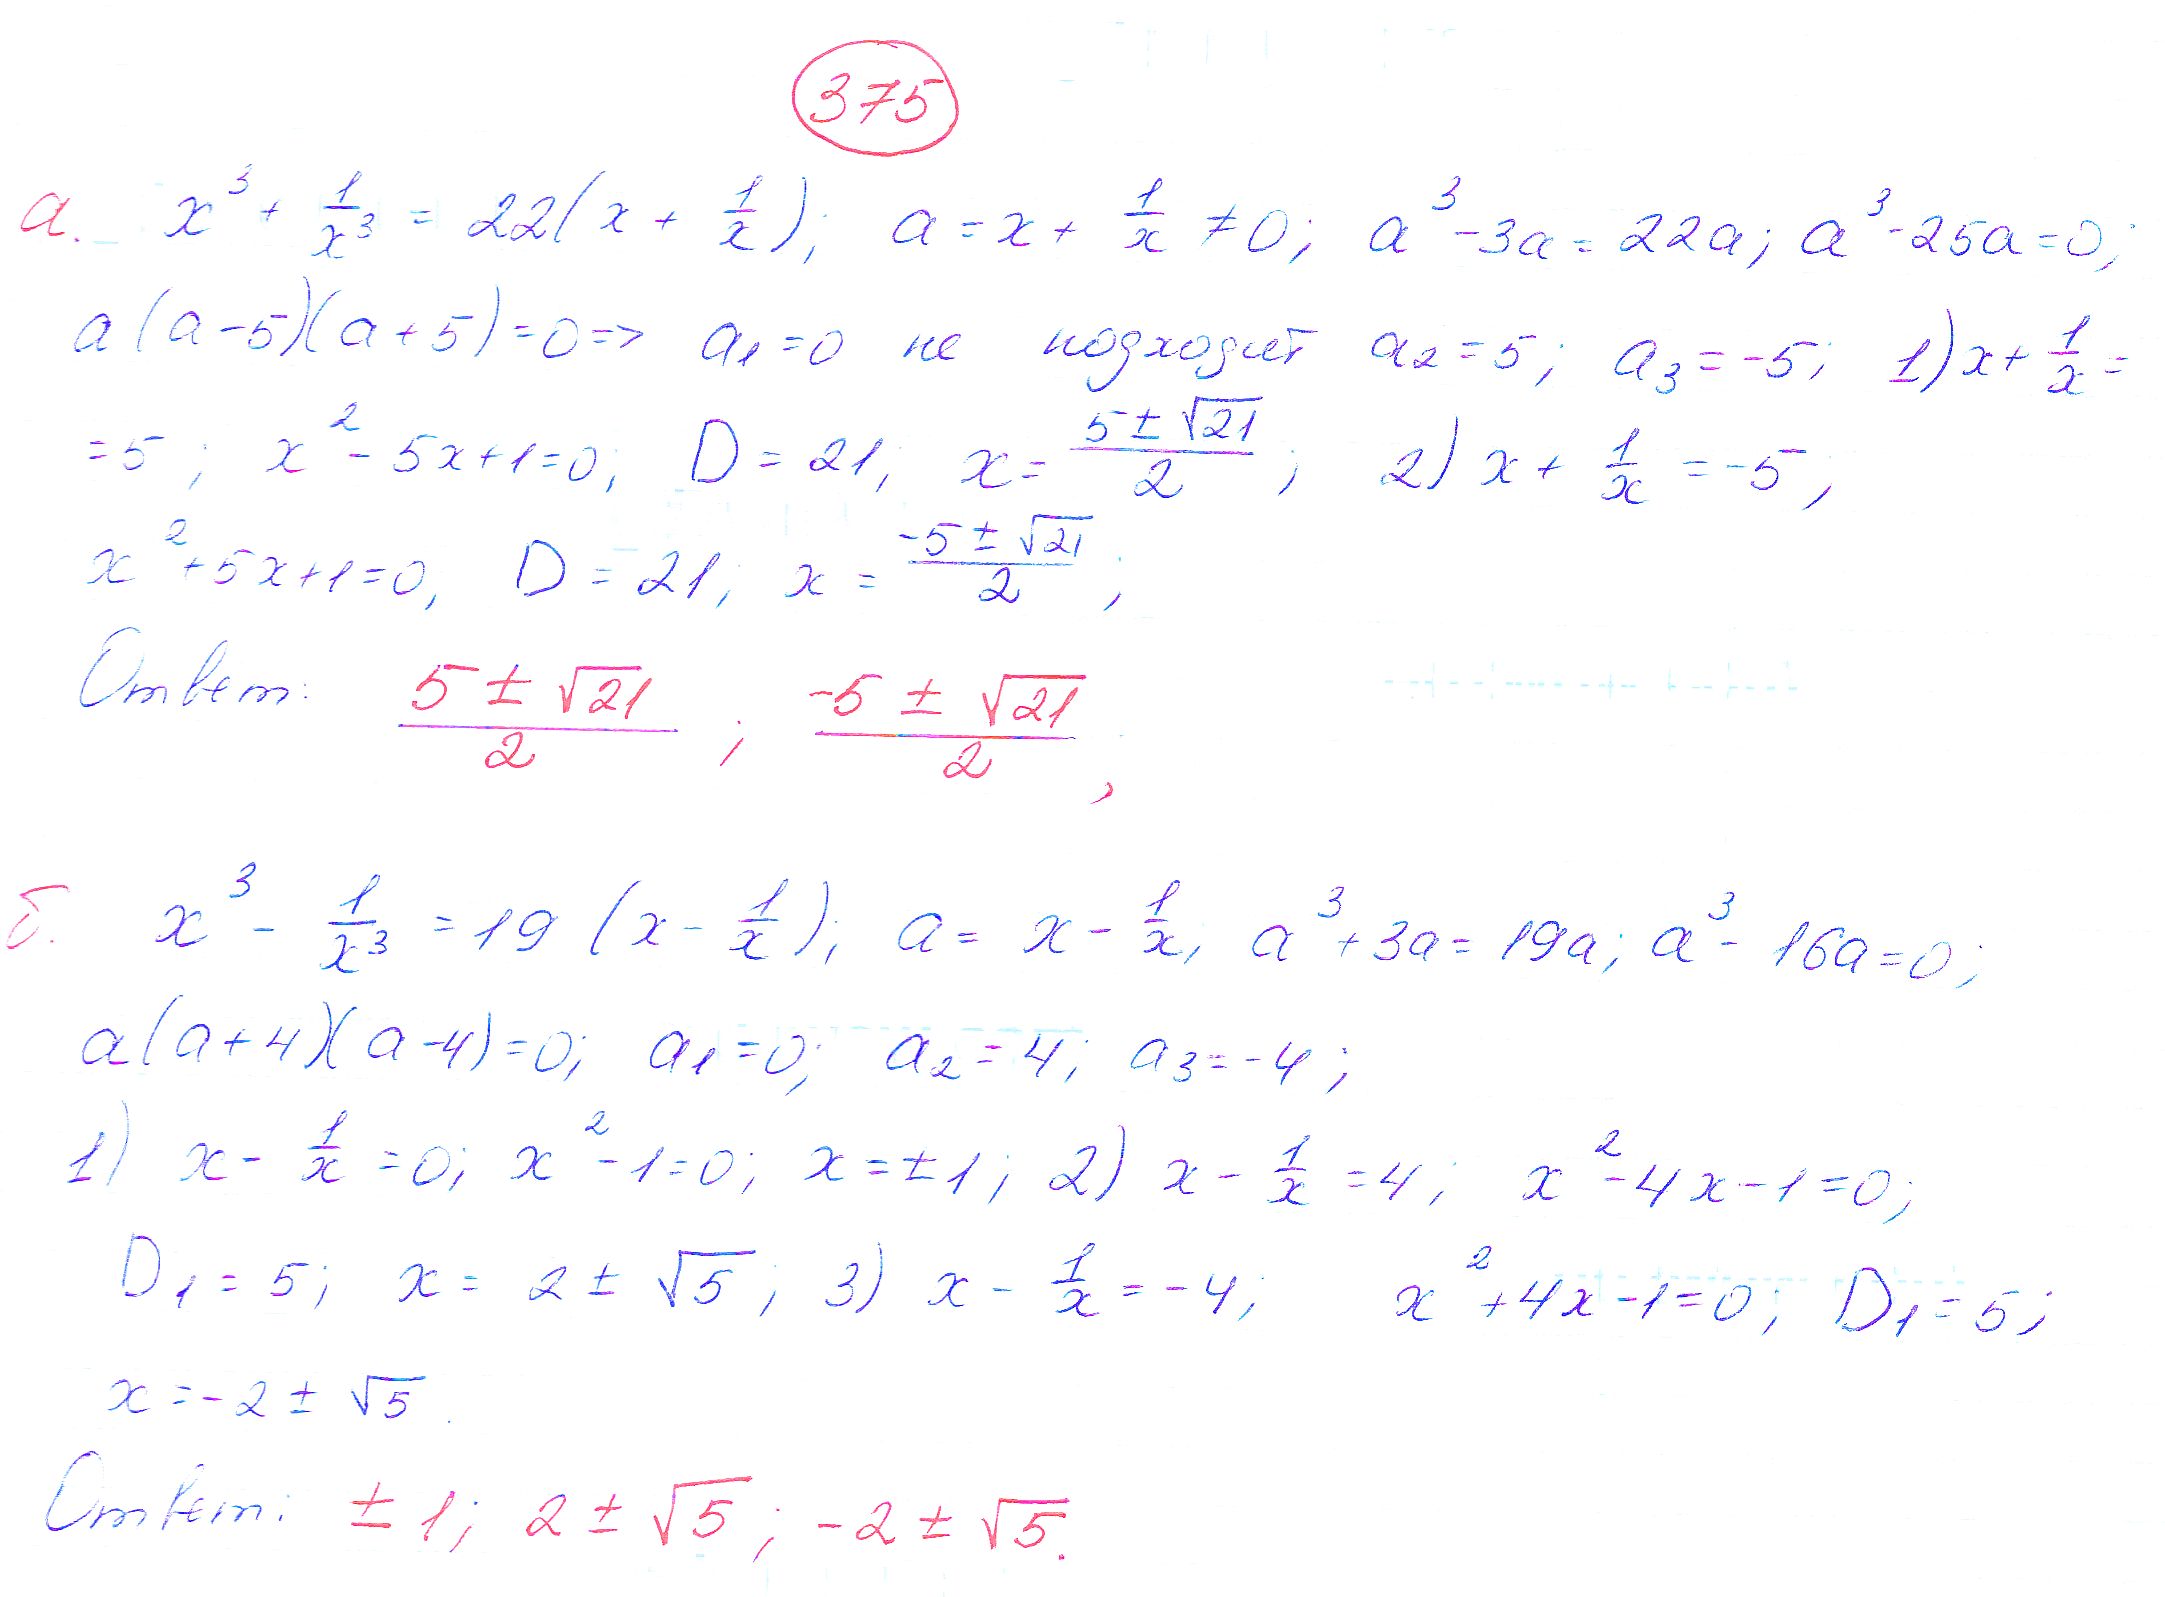 375
а. x³ + 1/x³ = 22(x + 1/x); a = x + 1/x ≠ 0; a³ - 3a = 22a; a³ - 25a = 0;
a(a - 5)(a + 5) = 0 => a₁ = 0 не подходит a₂ = 5; a₃ = -5; 1) x + 1/x =
= 5; x² - 5x + 1 = 0; D = 21; x = (5 ± √21)/2; 2) x + 1/x = -5;
x² + 5x + 1 = 0; D = 21; x = (-5 ± √21)/2;
Ответ: (5 ± √21)/2; (-5 ± √21)/2,
б. x³ - 1/x³ = 19(x - 1/x); a = x - 1/x; a³ + 3a = 19a; a³ - 16a = 0;
a(a + 4)(a - 4) = 0; a₁ = 0; a₂ = 4; a₃ = -4;
1) x - 1/x = 0; x² - 1 = 0; x = ±1; 2) x - 1/x = 4; x² - 4x - 1 = 0;
D₁ = 5; x = 2 ± √5; 3) x - 1/x = -4; x² + 4x - 1 = 0; D₁ = 5;
x = -2 ± √5.
Ответ: ±1; 2 ± √5; -2 ± √5.